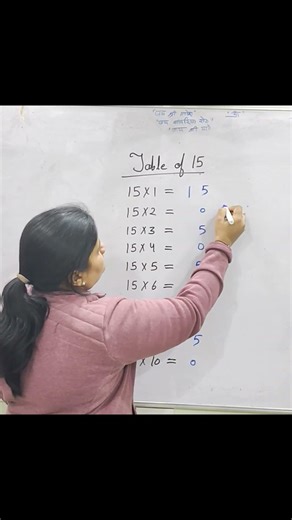 Table of 15
15 × 1 = 1 5
15 × 2 = 0
15 × 3 = 5
15 × 4 = 0
15 × 5 =
15 × 6 =
5
× 10 = 0